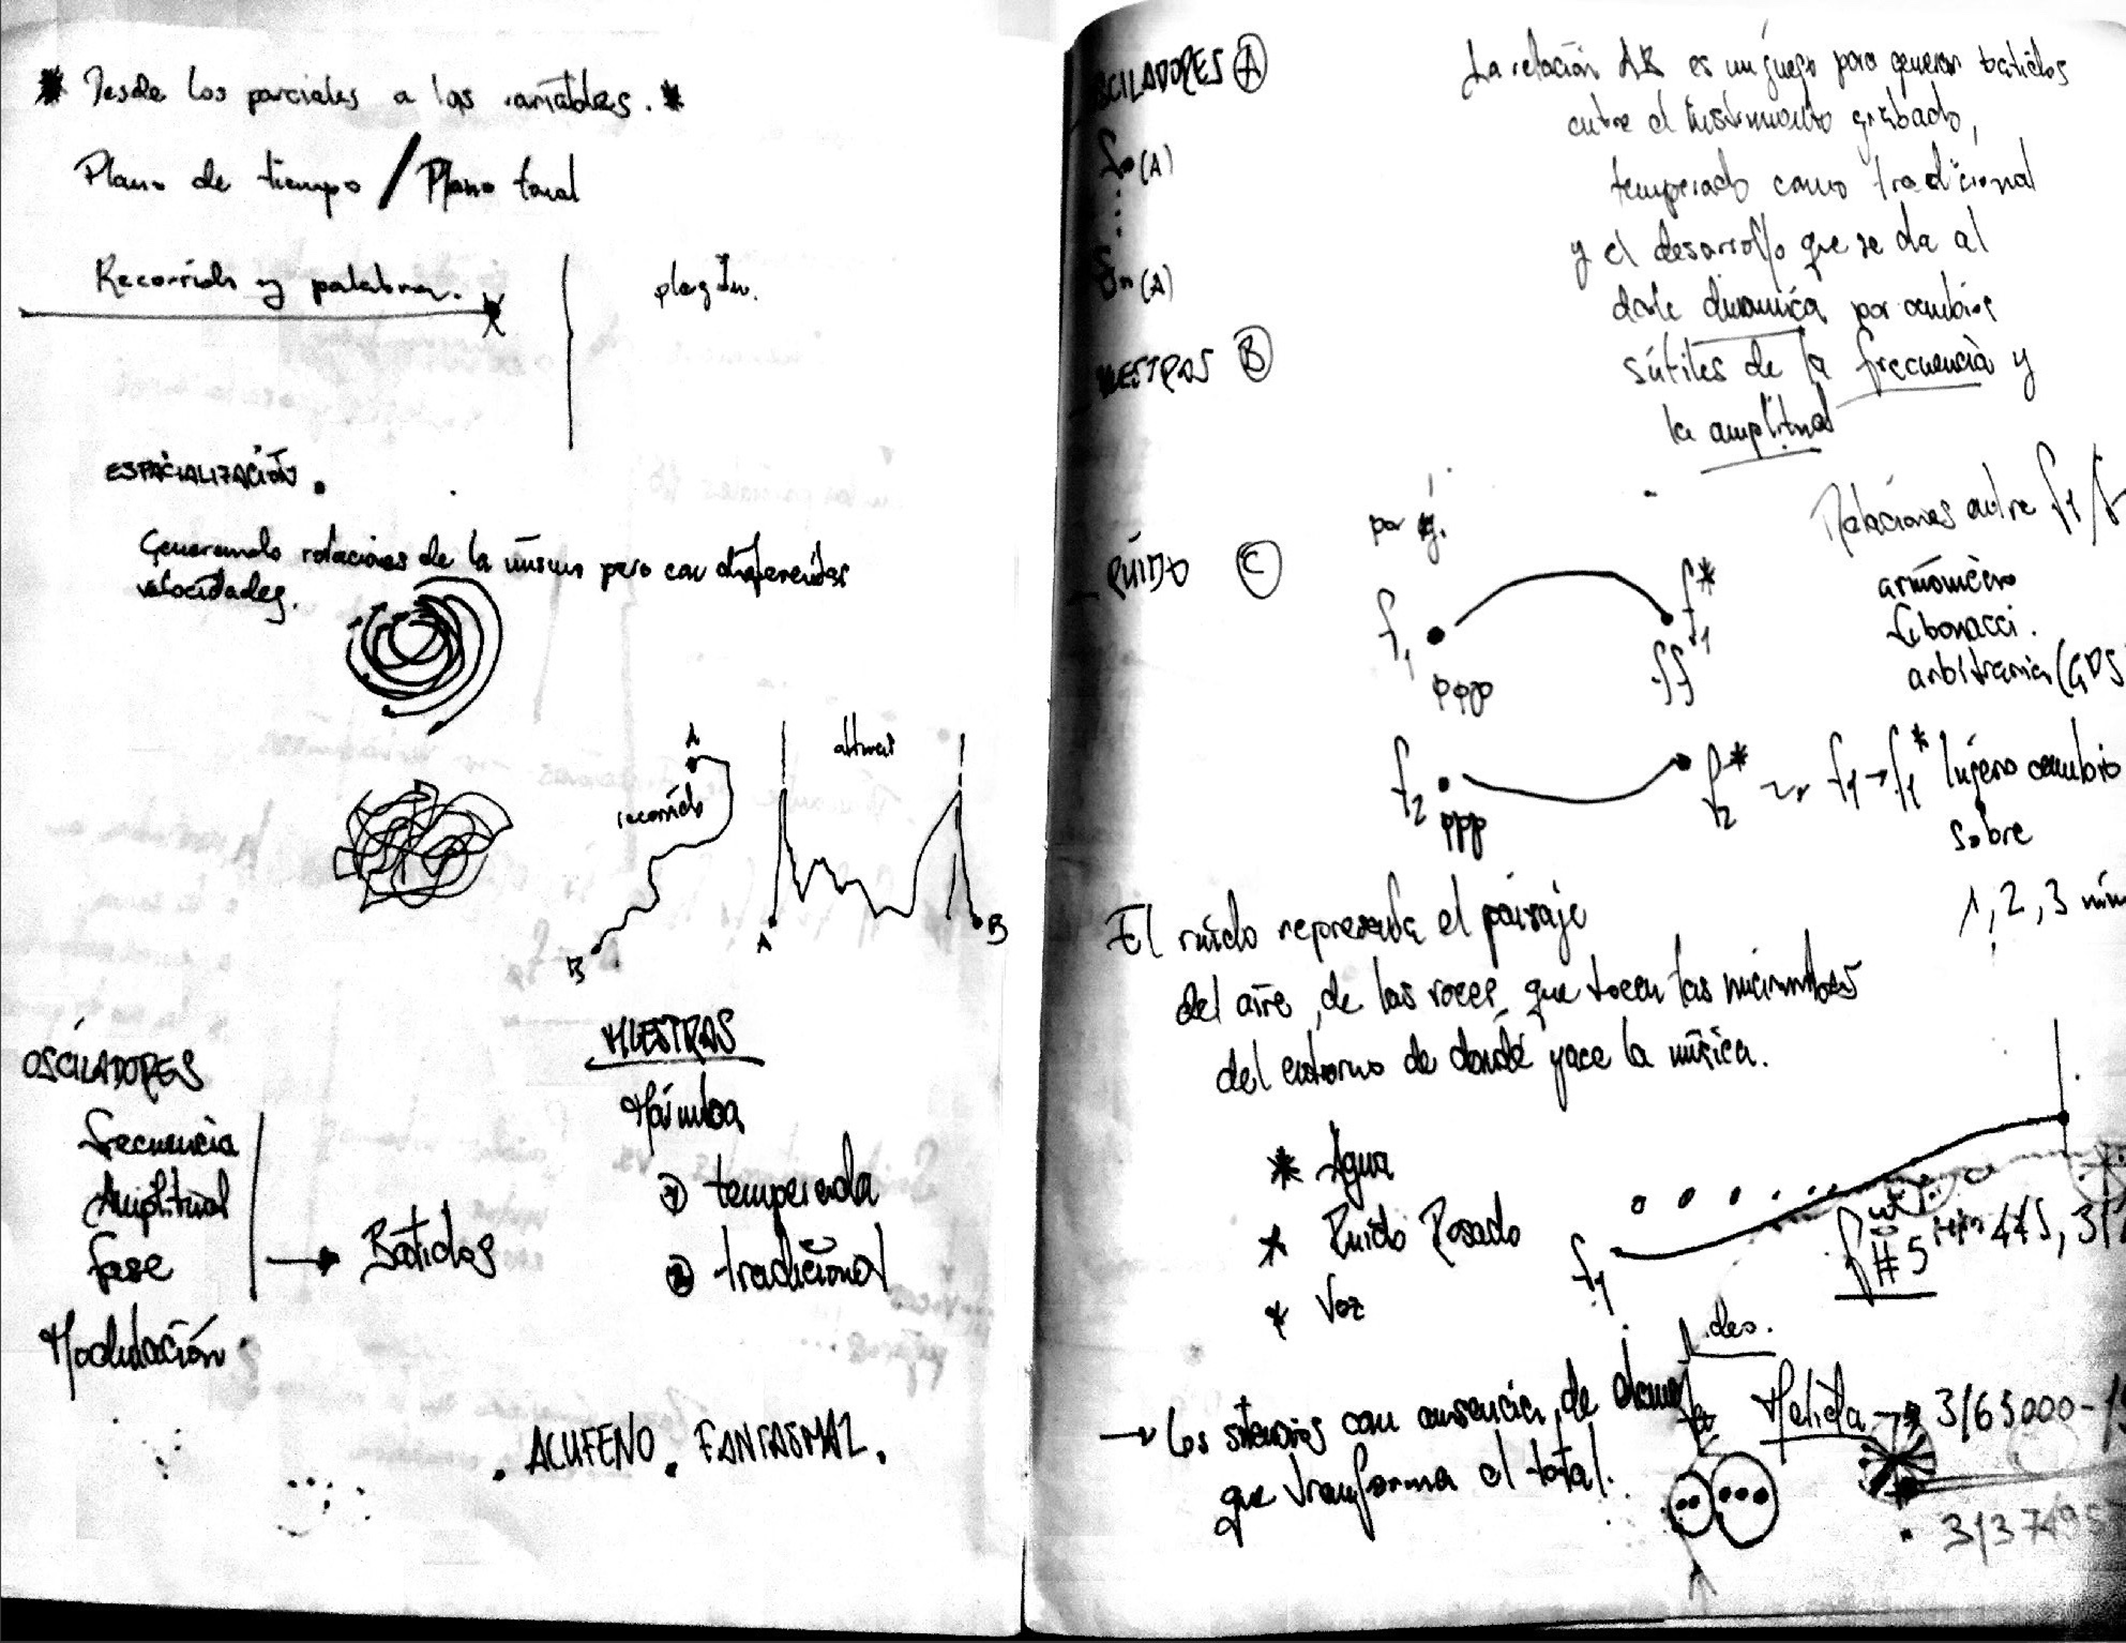 * Desde los parciales a las variables. *
Plano de tiempo / Plano tonal
Recorrido y palabra.
plug In.
ESPACIALIZACIÓN.
Generando rotaciones de la misma pero con diferentes
velocidades.
A
recorrido
B
alturas
A
B
OSCILADORES
frecuencia
Amplitud
fase
Modulación
→ Batidos
MUESTRAS
Marimba
① temperada
② tradicional
. ACUFENO. FANTASMAL.
OSCILADORES Ⓐ
f0 (A)
fn (A)
MUESTRAS Ⓑ
RUIDO Ⓒ
La relación AB es un juego para generar batidos
entre el instrumento grabado,
temperado como tradicional
y el desarrollo que se da al
darle dinámica por cambios
sútiles de la frecuencia y
la amplitud
por ej.
f1
ppp
f1*
ff
Relaciones entre f1/f
armónicero
fibonacci.
arbitraria (GDS
f2
ppp
f2* ~ f1 → f1* lijero cambio
sobre
1, 2, 3 min
El ruido representa el paisaje
del aire, de las voces, que tocan las
del entorno de donde yace la música.
* Agua
* Ruido Rosado
* Voz
f1
f#5
445, 3
des.
→ Los silencios con ausencia de
que transforma el total.
Melida → 3/65000-1
. 3137495